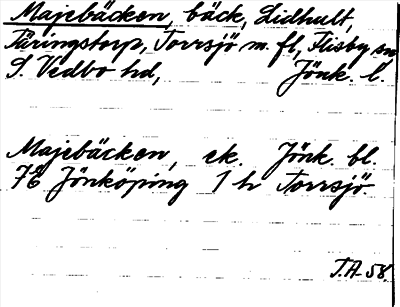 Majebäcken, bäck, Lidhult,
Täringstorp, Torrsjö m. fl., Flisby sn
S. Vedbo hd, Jönk. l.
Majebäcken, ek. Jönk. bl.
7E Jönköping 1 h Torrsjö
T.A. 58.